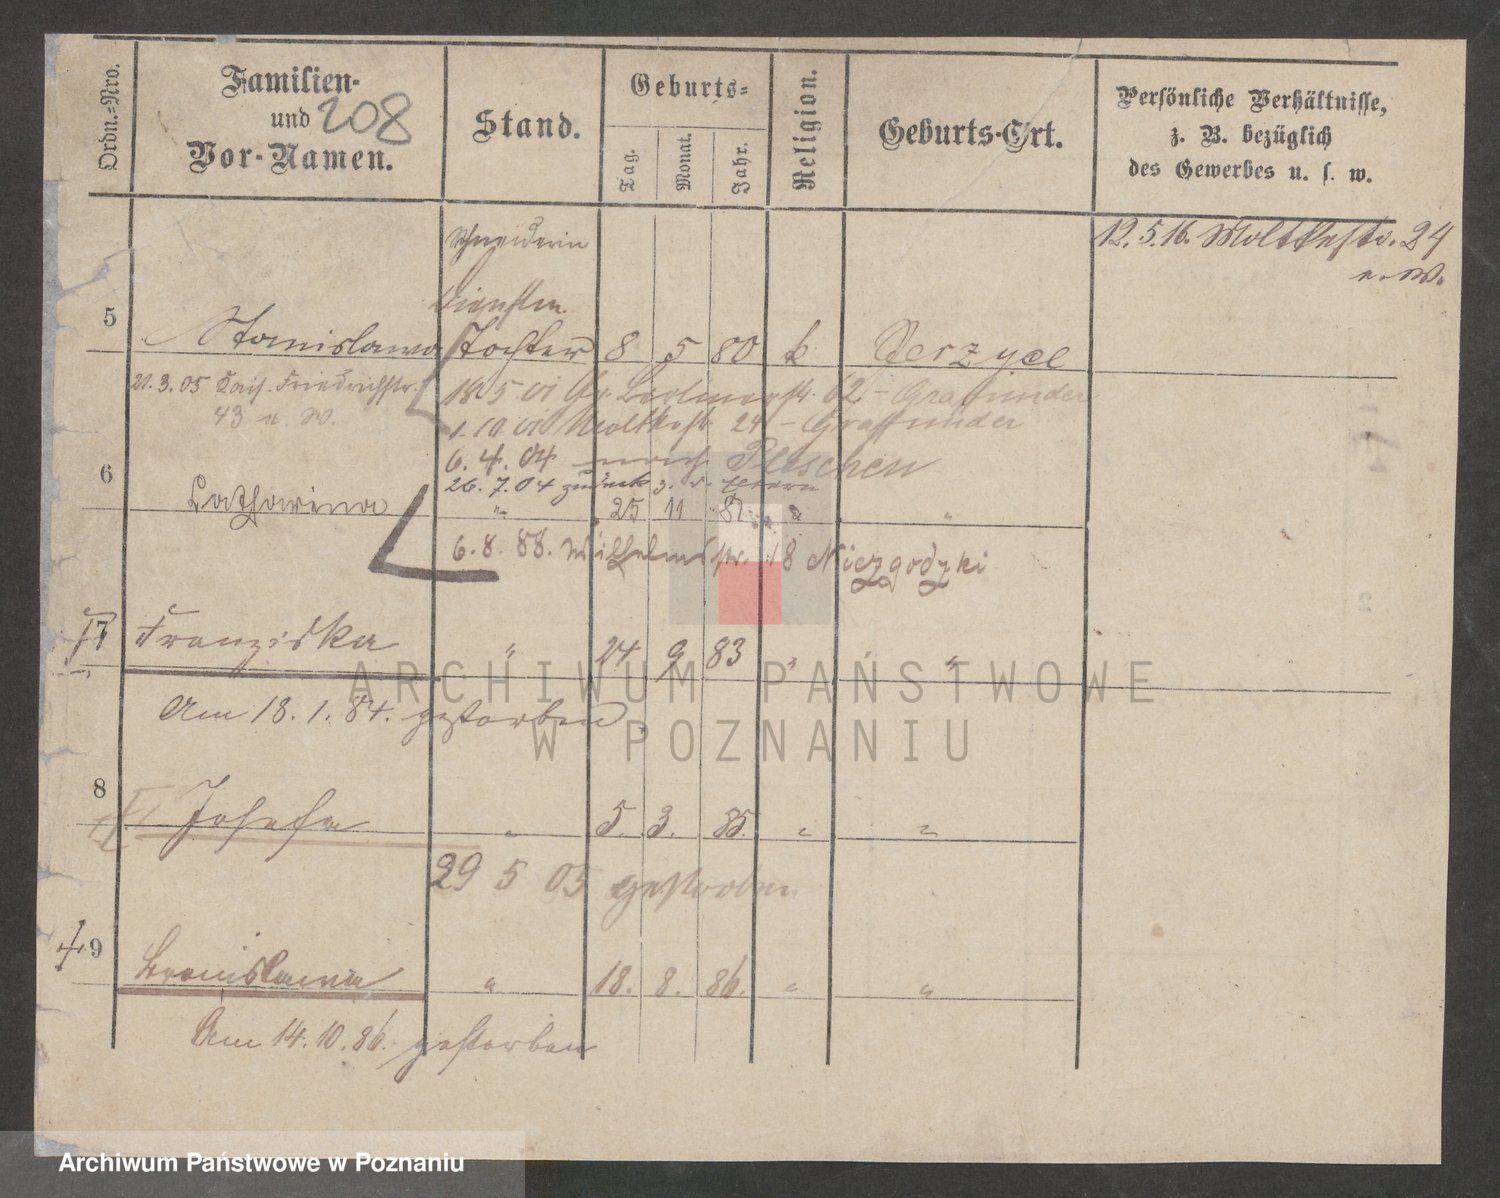 Ordn.-Nro.
Familien-
und 208
Vor-Namen.
Stand.
Geburts-
Tag.
Monat.
Jahr.
Religion.
Geburts-Ort.
Persönliche Verhältnisse,
z. B. bezüglich
des Gewerbes u. s. w.
Schneiderin
12. 5. 16. Moltkestr. 24
n. W.
5 Stanislawa Tochter 8 5 80 k Gerzyce
21. 3. 05 Kais. Friedrichstr.
43 n. W.
18 5 01 Gr. Berlinerstr. 62 - Grafmünder
1. 10 01 Moltkestr. 24 - Grafmünder
6. 4. 04 nach Pleschen
26. 7. 04 zurück z. d. Eltern
6 Katharina " 25 11 81 " "
6. 8. 88. Wilhelmstr. 18 Niezgodzki
7 Franziska " 24 9 83 " "
Am 18. 1. 84. gestorben
8 Josefa " 5. 3. 85. " "
29 5 05 gestorben
9 Bronislawa " 18. 8. 86. " "
Am 14. 10. 86. gestorben
ARCHIWUM PAŃSTWOWE
W POZNANIU
Archiwum Państwowe w Poznaniu